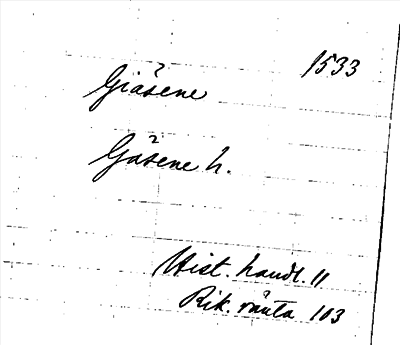 1533
Giäsene
Gäsene h.
Hist. handl. 11
Rik. ränta 103